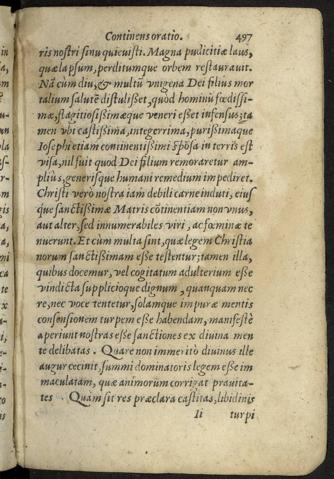 Continens oratio. 497
ris nostri sinu quieuisti. Magna pudicitiæ laus,
quæ lapsum, perditumque orbem restaurauit.
Nã cùm diu, & multũ vnigena Dei filius mor
talium salutẽ distulisset, quòd hominũ fœdissi-
mæ, flagitiosissimæque veneri esset infensus; ta
men vbi castissima, integerrima, purissimaque
Ioseph etiam continentissimi spõsa in terris est
visa, nil fuit quod Dei filium remoraretur am-
plius, generisque humani remedium impediret.
Christi verò nostra iam debili carne induti, eius
que sanctissimæ Matris cõtinentiam non vnus,
aut alter, sed innumerabiles viri, ac fœminæ te
nuerunt. Et cùm multa sint, quæ legem Christia
norum sanctissimam esse testentur; tamen illa,
quibus docemur, vel cogitatum adulterium esse
vindicta supplicioque dignum, quanquam nec
re, nec voce tentetur, solamque impuræ mentis
consensionem turpem esse habendam, manifestè
aperiunt nostras esse sanctiones ex diuina men
te delibatas. Quare non immeritò diuinus ille
augur cecinit, summi dominatoris legem esse im
maculatam, quæ animorũm corrigat prauita-
tes Quàm sit res præclara castitas, libidinis
Ii turpi